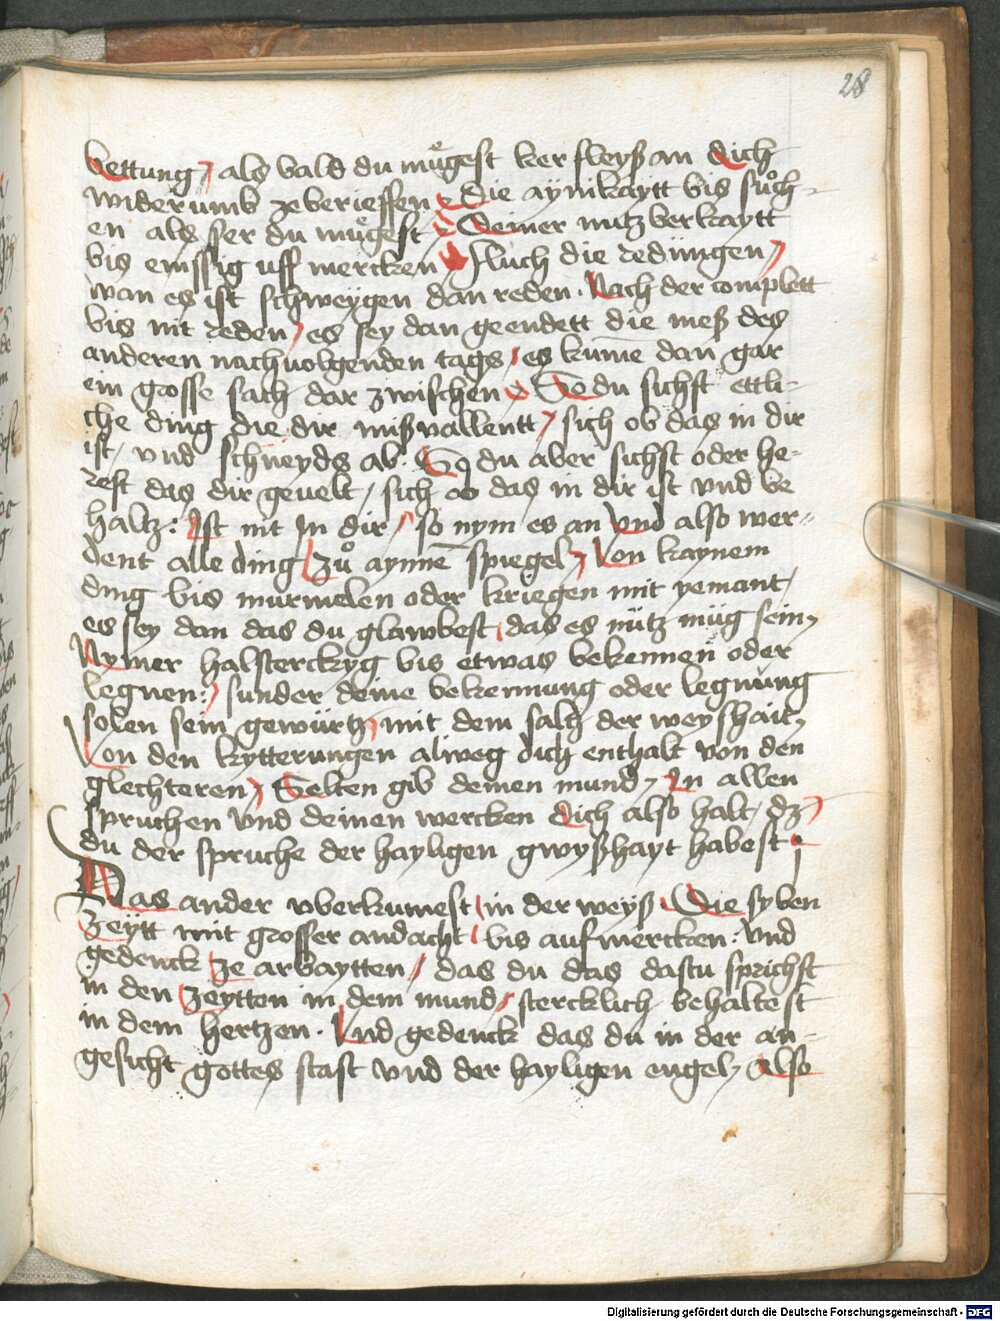 28
bettung / als bald du mügest ker fleyß an dich
widerumb ze berieffen Die aynikaytt bis such-
en als fer du mügest Deiner nutzberkaytt
bis emssig uff mercken fluch die redungen /
wan es ist schweygen dan reden. Nach der complett
bis nit reden / es sey dan geendett die meß des
anderen nachuolgenden tags / es kume dan gar
ein grosse sach dar zwischen So du sichst ettli-
che ding die dir mißuallentt / sich ob das in dir
ist / vnd schneyds ab. So du aber sichst oder he-
rest das dir geuelt / sich ob das in dir ist vnd be
haltz: Ist nit In dir / so nym es an Vnd also wer-
dent alle ding zů aynne spiegel / Von kaynem
ding bis murmelen oder kriegen mit yemant /
es sey dan das du glawbest / das es nütz müg sein /
Nymer halsterckyg bis etwas bekennen oder
legnen: / sunder deine bekennung oder legnung
solen sein gewürtz mit dem saltz der weyßhait /
Von den kytterungen alweg dich enthalt von den
glechteren / Selten gib deinen mund / In allen
spruchen vnd deinen wercken dich also halt / dz
du der spruche der hayligen gwyßhayt habest
Das ander vberkumest in der weyß. Die syben
zeytt mit grosser andacht / bis aufmercken: vnd
gedenck ze arbaytten / das du das dastu sprichst
in den zeytten in dem mund / stercklich behaltest
in dem hertzen. Vnd gedenck das du in der an-
gesicht gottes stast vnd der hayligen engel / Also
Digitalisierung gefördert durch die Deutsche Forschungsgemeinschaft - DFG